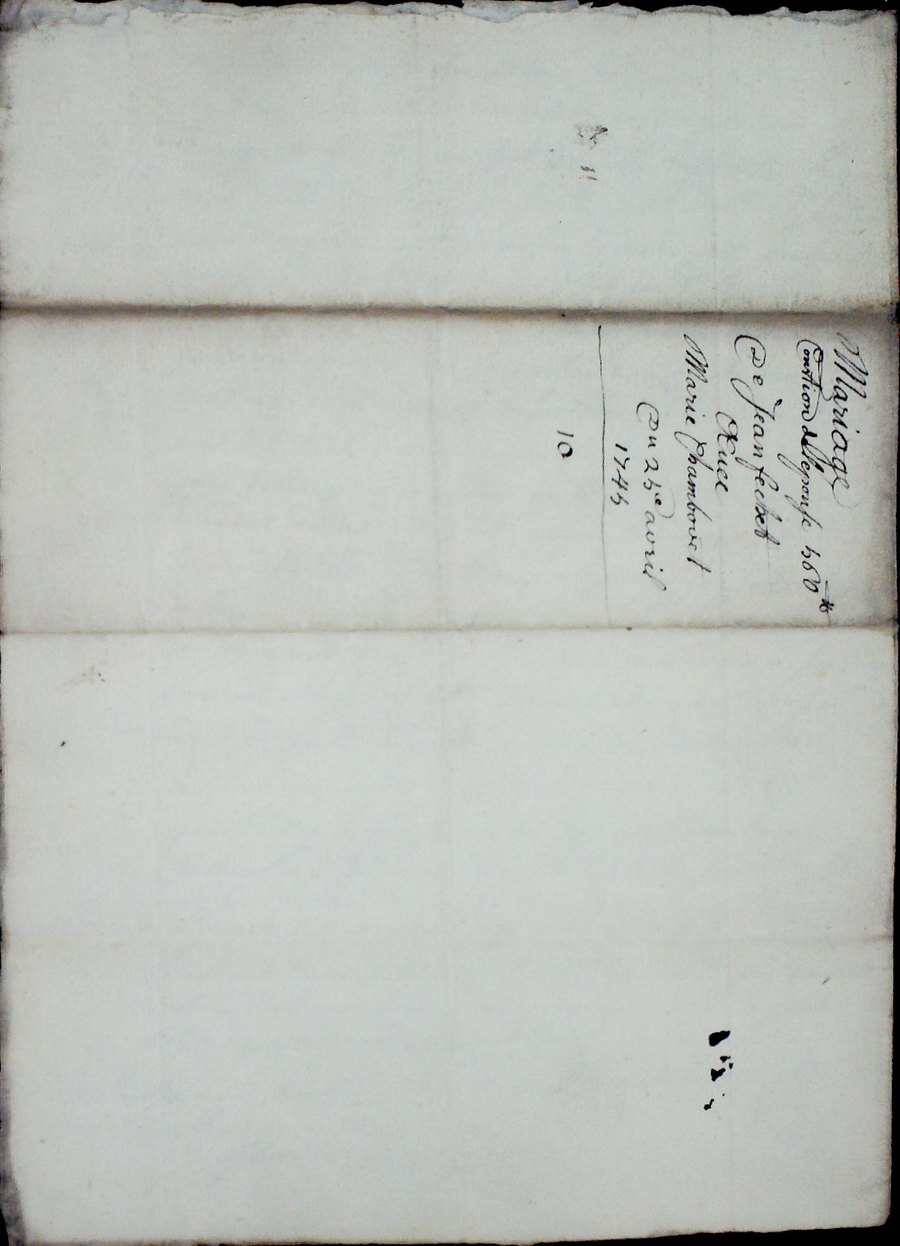 Mariage
Constion de l'Epouse 560 ₶
De Jean fechet
Avec
Marie Chambovet
Du 25e avril
1745
10